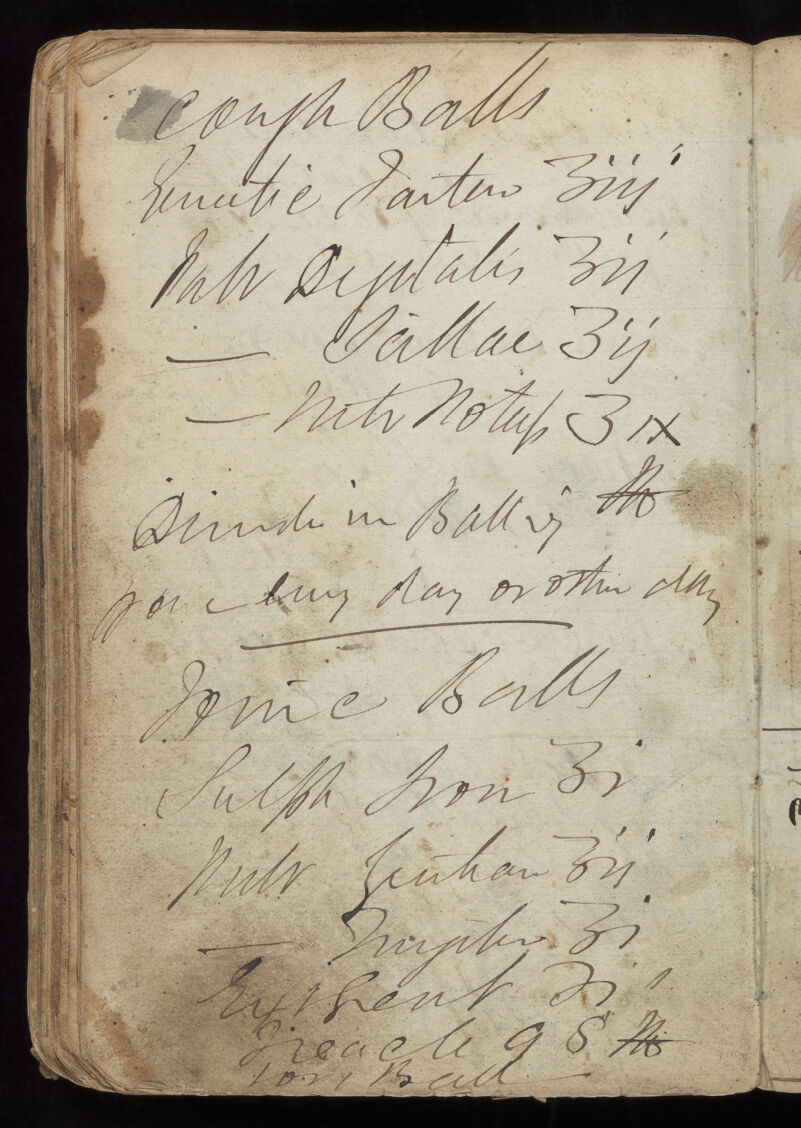 Cough Balls
Emetic Tartar ʒiij
Pulv Digitalis ʒij
— Scillae ʒij
— Nitr Potass ʒ ix
Divide in Balls vj
one every day or other day
Tonic Balls
Sulph Iron ʒi
Pulv Gentian ʒij
— Zingiber ʒi
Ext Gent ʒi
Treacle q s
for 1 Ball